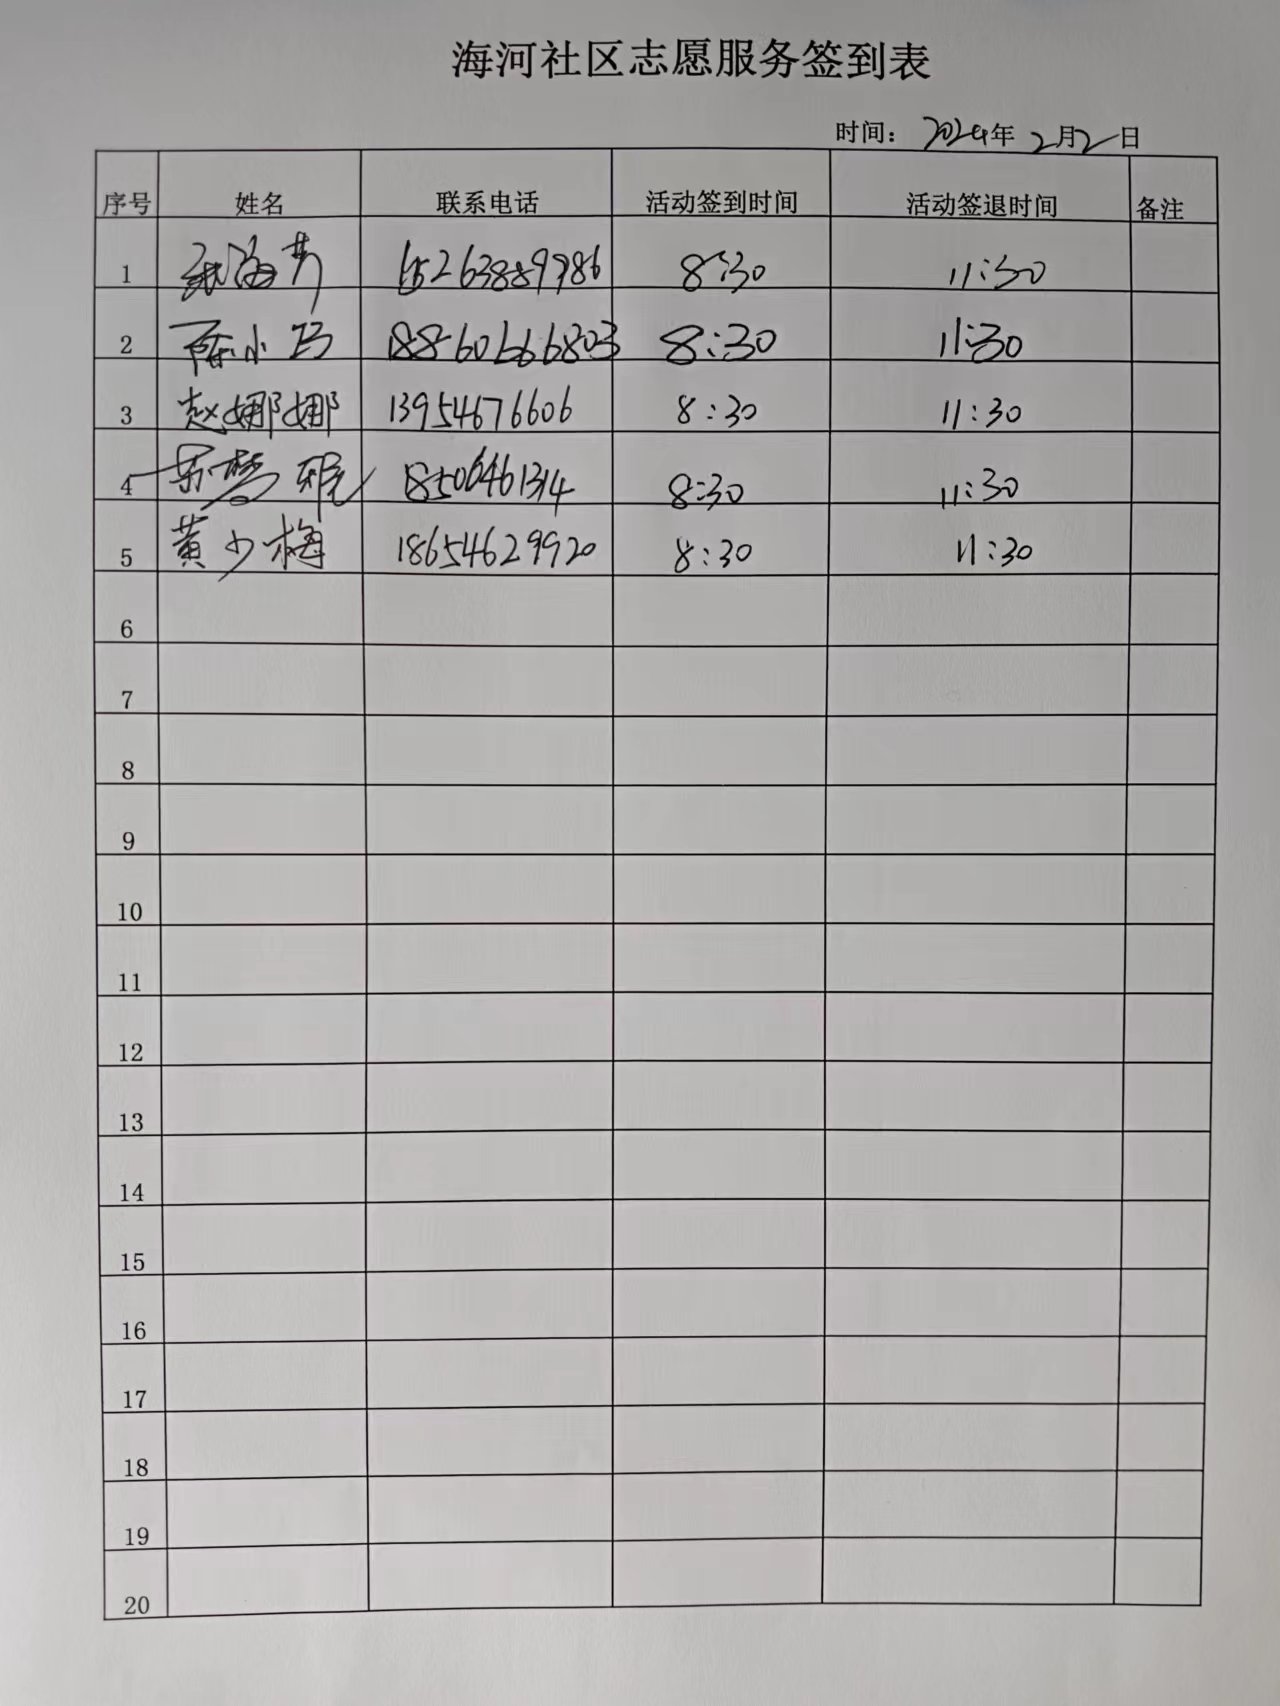 海河社区志愿服务签到表
时间：2024年2月2日
序号 姓名 联系电话 活动签到时间 活动签退时间 备注
1 海芳 15263889986 8:30 11:30
2 陈小巧 18860666803 8:30 11:30
3 赵娜娜 13954676606 8:30 11:30
4 梦妮 18506461314 8:30 11:30
5 黄少梅 18654629920 8:30 11:30
6
7
8
9
10
11
12
13
14
15
16
17
18
19
20